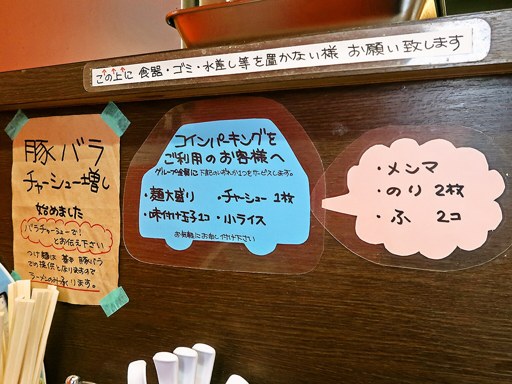 この上に 食器・ゴミ・水差し等を置かない様 お願い致します
豚バラ
チャーシュー増し
始めました
バラチャーシューで!
とお伝え下さい
つけ麺は 豚バラ
のみ提供となりますので
ラーメンのみ承ります。
コインパーキングを
ご利用のお客様へ
グループ全員に 下記のいずれか1つをサービスします。
・麺大盛り ・チャーシュー 1枚
・味付け玉子1コ ・小ライス
お気軽にお申し付け下さい
・メンマ
・のり 2枚
・ふ 2コ